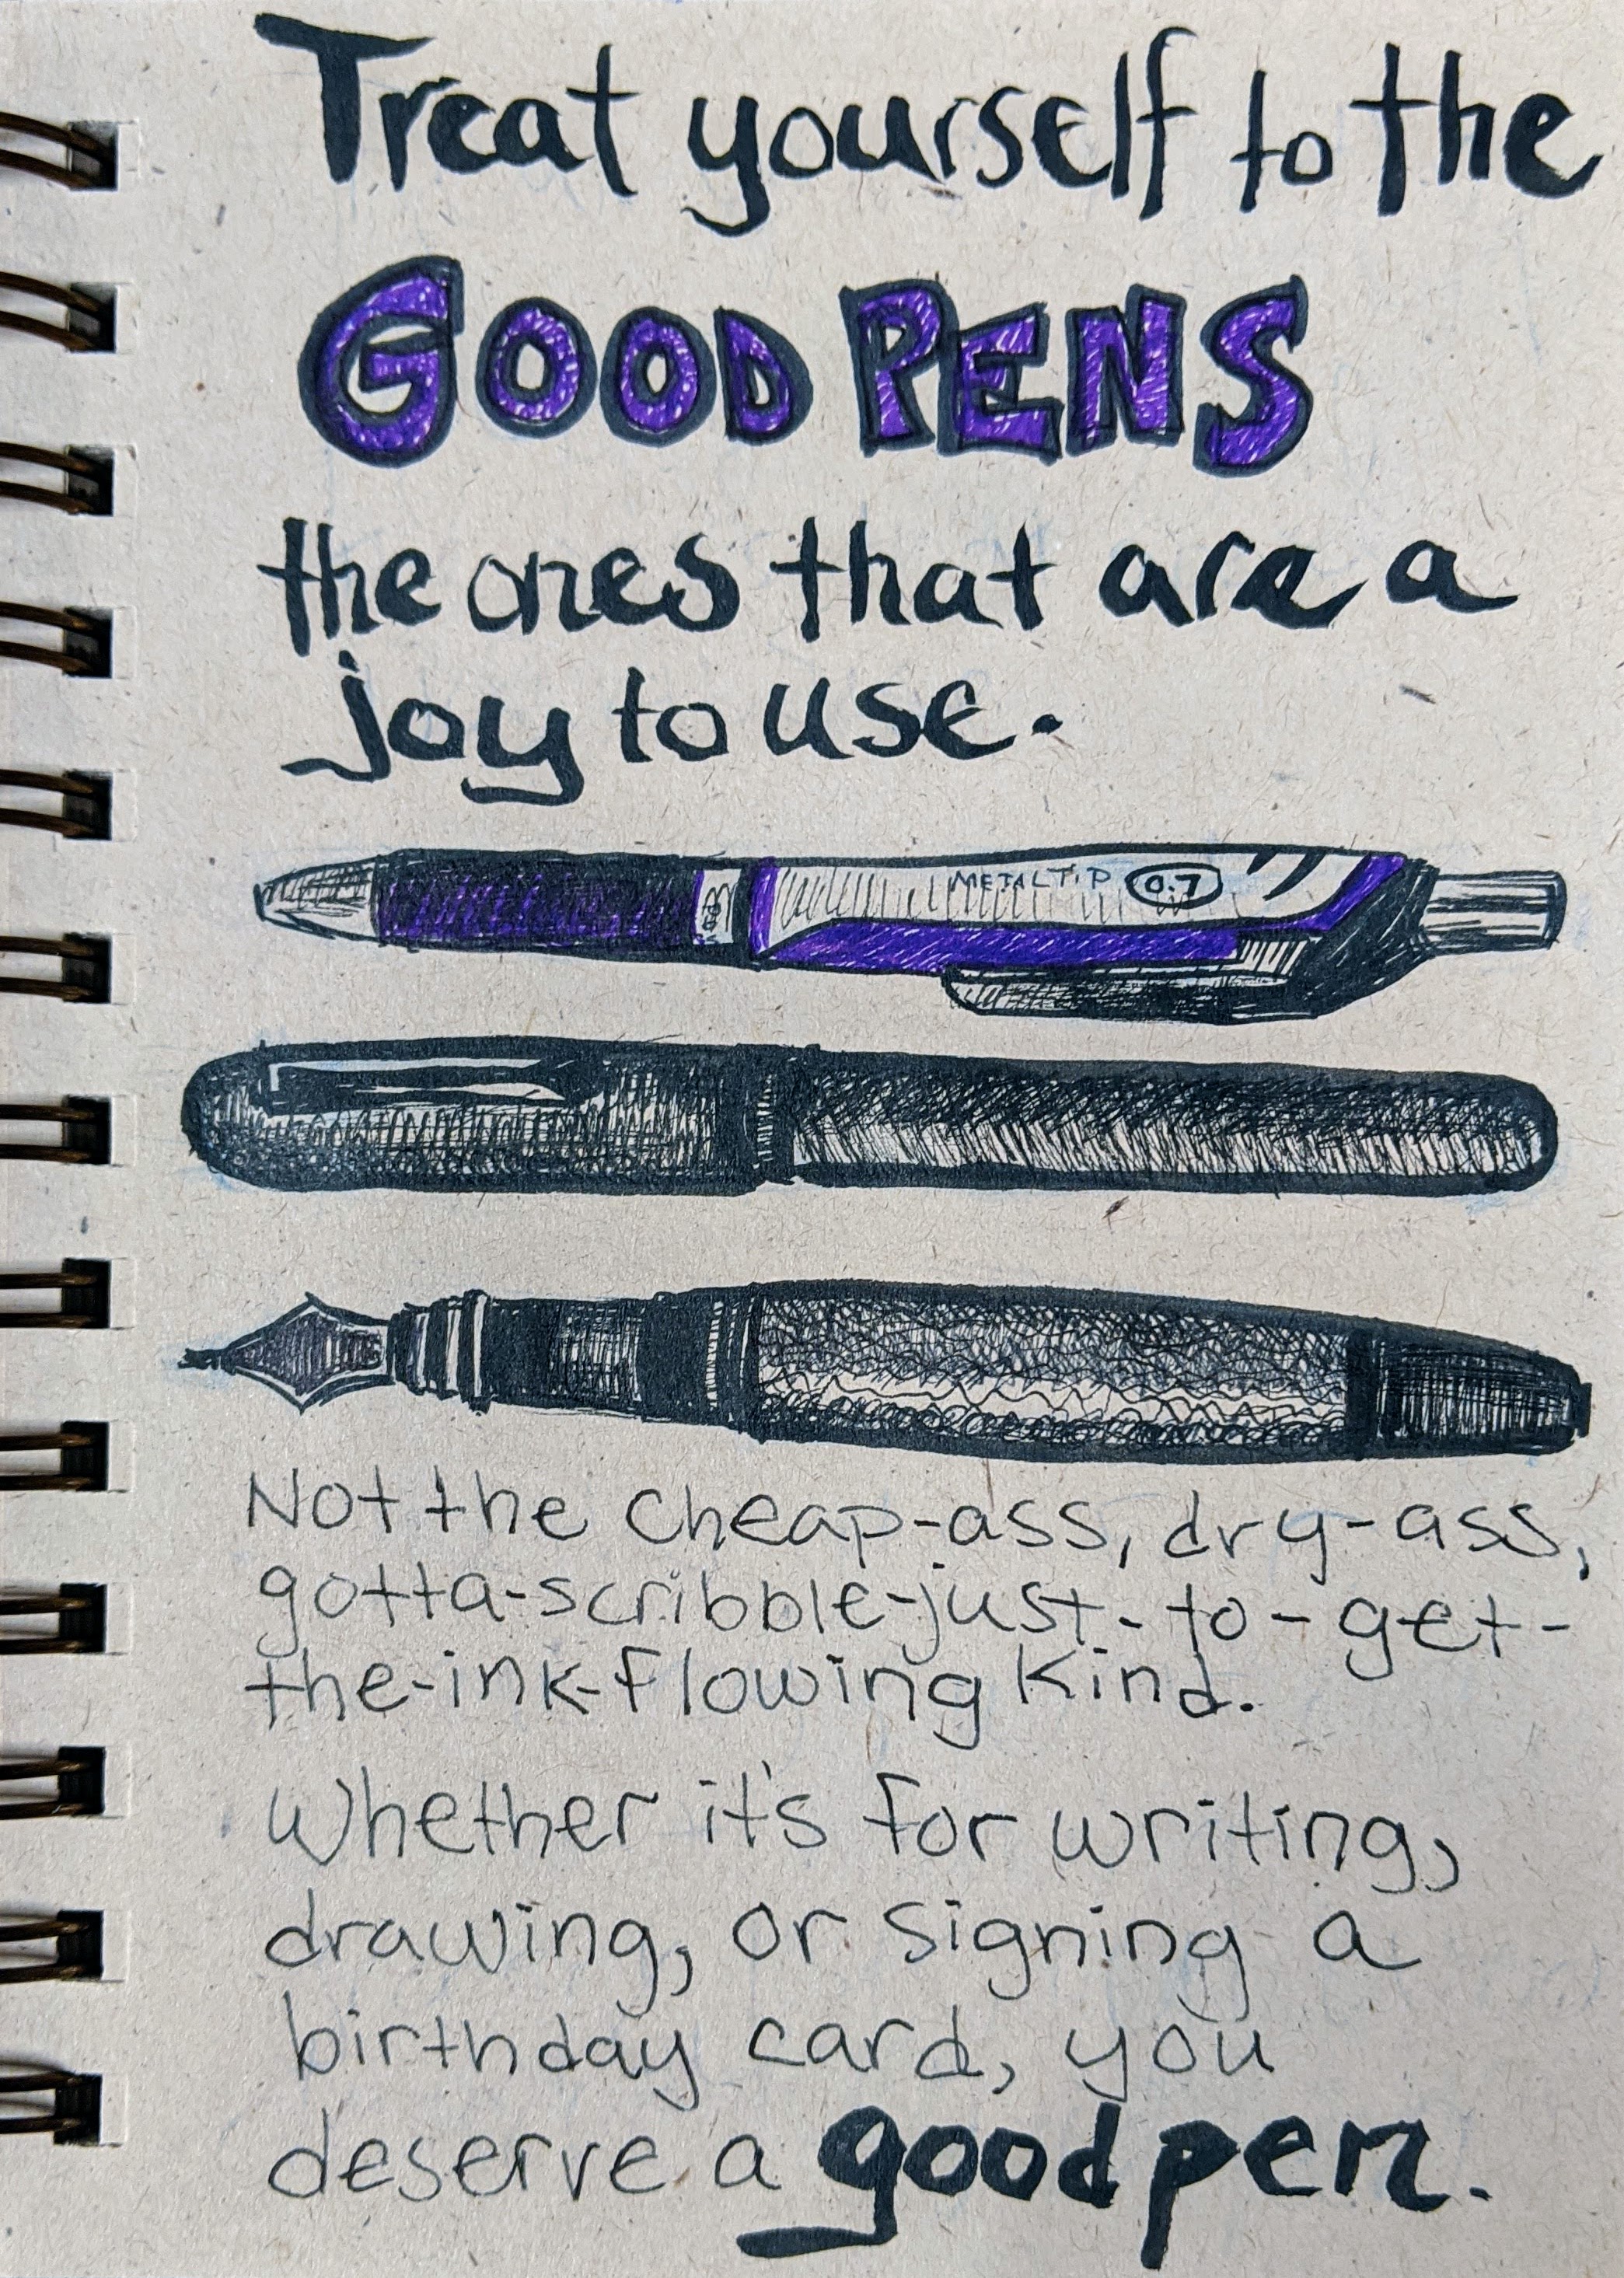 Treat yourself to the
GOOD PENS
the ones that are a
joy to use.
METAL TIP 0.7
Not the cheap-ass, dry-ass,
gotta-scribble-just-to-get-
the-ink-flowing kind.
Whether it's for writing,
drawing, or signing a
birthday card, you
deserve a good pen.